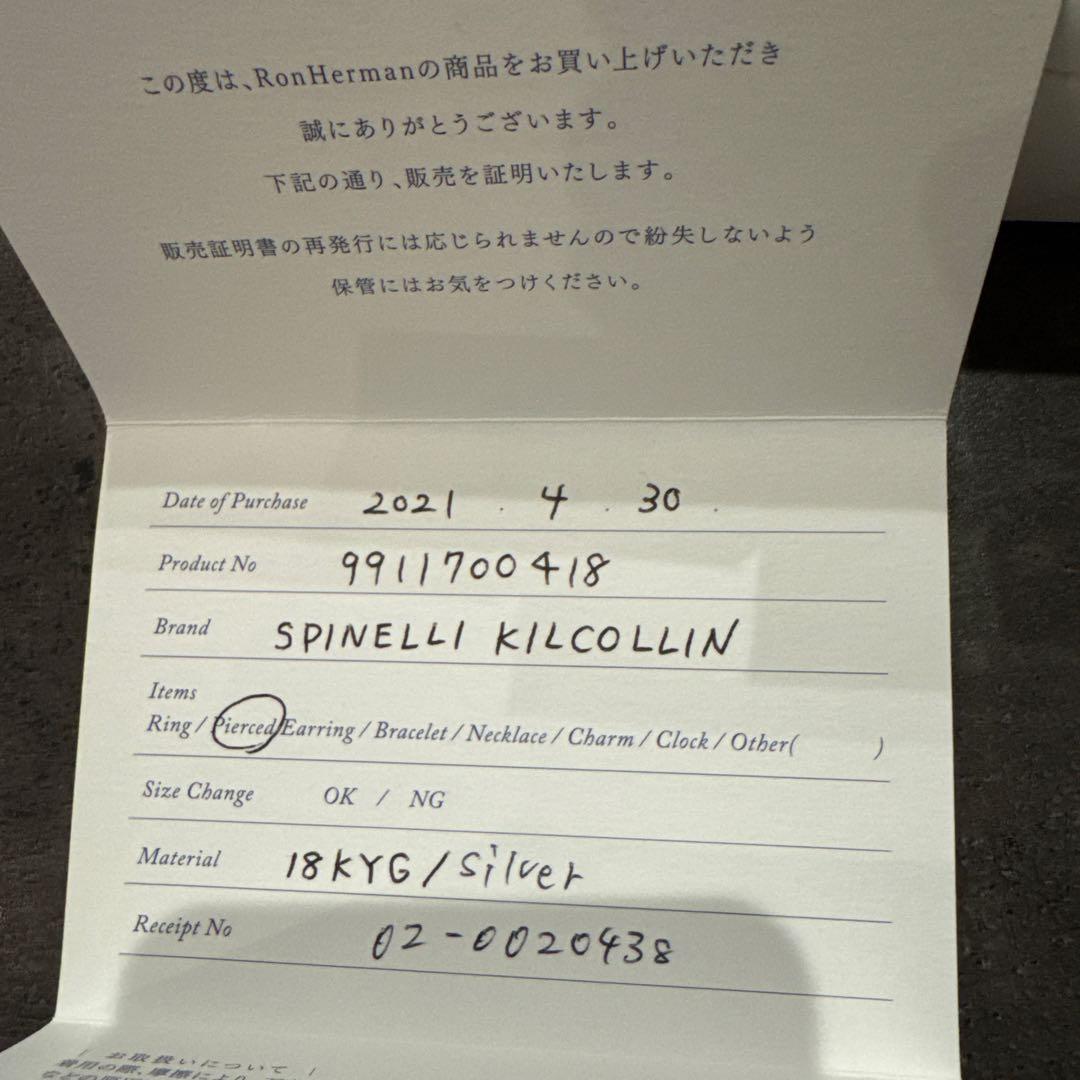 この度は、RonHermanの商品をお買い上げいただき
誠にありがとうございます。
下記の通り、販売を証明いたします。
販売証明書の再発行には応じられませんので紛失しないよう
保管にはお気をつけください。
Date of Purchase 2021 . 4 . 30 .
Product No 9911700418
Brand SPINELLI KILCOLLIN
Items
Ring / Pierced/Earring / Bracelet / Necklace / Charm / Clock / Other( )
Size Change OK / NG
Material 18KYG / Silver
Receipt No 02-0020438
/ お取扱いについて /
着用の際、摩擦により
などの